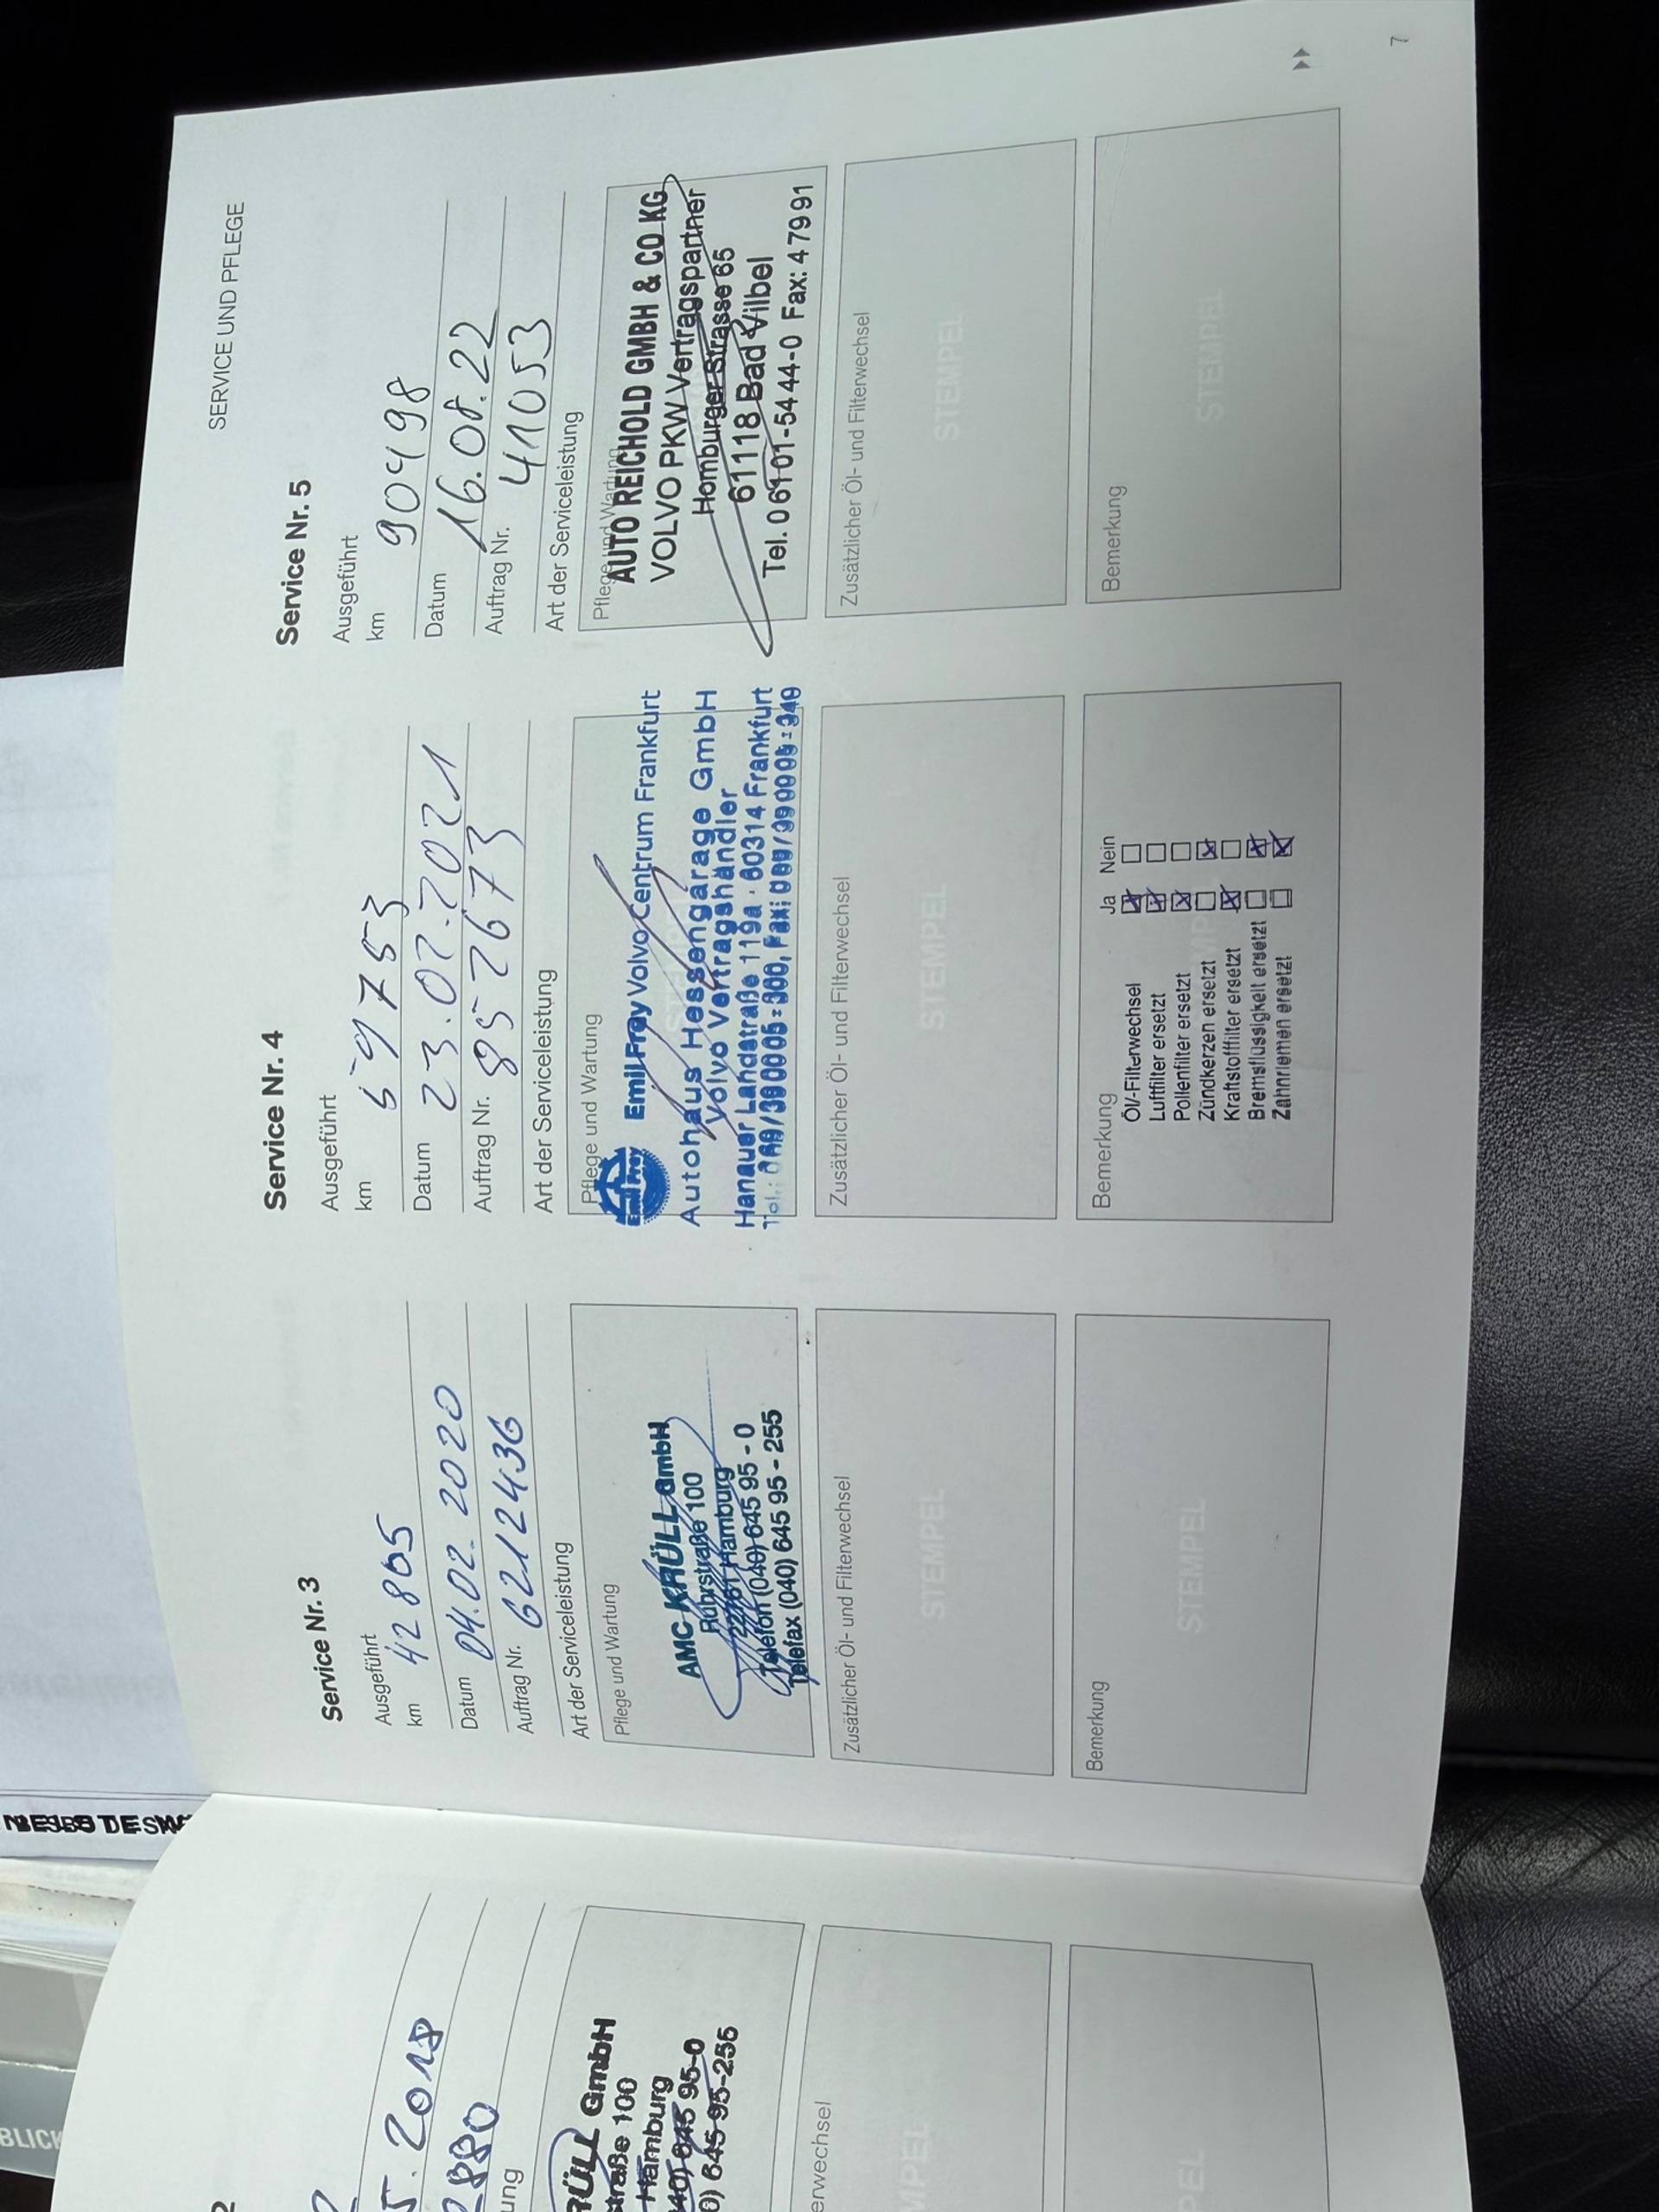 SERVICE UND PFLEGE
Service Nr. 3
Ausgeführt
km 42805
Datum 04.02.2020
Auftrag Nr. 62112436
Art der Serviceleistung
Pflege und Wartung
AMC KRÜLL GmbH
Ruhrstraße 100
22761 Hamburg
Telefon (040) 645 95 - 0
Telefax (040) 645 95 - 255
Zusätzlicher Öl- und Filterwechsel
STEMPEL
Bemerkung
STEMPEL
Service Nr. 4
Ausgeführt
km 59753
Datum 23.02.2021
Auftrag Nr. 8526773
Art der Serviceleistung
Pflege und Wartung
Emil Frey
Emil Frey Volvo Centrum Frankfurt
Autohaus Hessengarage GmbH
Volvo Vertragshändler
Hanauer Landstraße 119a · 60314 Frankfurt
Zusätzlicher Öl- und Filterwechsel
STEMPEL
Bemerkung
Ja Nein
Öl/-Filterwechsel
Luftfilter ersetzt
Pollenfilter ersetzt
Zündkerzen ersetzt
Kraftstofffilter ersetzt
Bremsflüssigkeit ersetzt
Zahnriemen ersetzt
Service Nr. 5
Ausgeführt
km 90498
Datum 16.08.22
Auftrag Nr. 41053
Art der Serviceleistung
Pflege und Wartung
AUTO REICHOLD GMBH & CO KG
VOLVO PKW Vertragspartner
Homburger Strasse 65
61118 Bad Vilbel
Tel. 0 61 01-54 44-0 Fax: 4 79 91
Zusätzlicher Öl- und Filterwechsel
STEMPEL
Bemerkung
STEMPEL
7
5. 2018
880
ung
RÜLL GmbH
straße 100
Hamburg
40) 645 95-0
0) 645-95-255
erwechsel
MPEL
PEL
BLICK